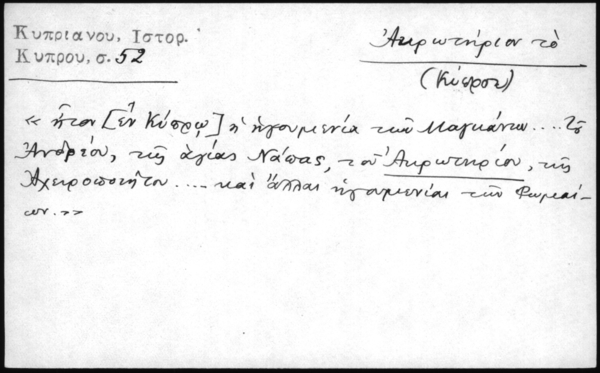 Κυπριανου, Ιστορ.
Κυπρου, σ. 52
Ἀκρωτήριον τὸ
(Κύπρου)
« ἦτον [ἐν Κύπρῳ] ἡ ἡγουμενία τῶν Μαγκάνων .... τοῦ
Ἀνδρίου, τῆς ἁγίας Νάπας, τοῦ Ἀκρωτηρίου, τῆς
Ἀχειροποιήτου .... καὶ ἄλλαι ἡγουμενίαι τῶν Ῥωμαί-
ων. »